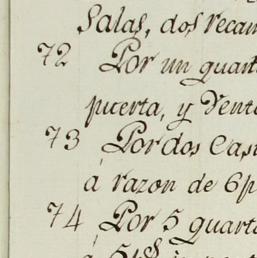 Salas, dos recam
72 Por un quart
puerta, y Vent
73 Por dos Cas
á razon de 6 p
74 Por 5 quart
á 5